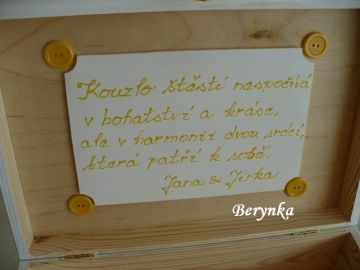 Kouzlo štěstí nespočívá
v bohatství a kráse,
ale v harmonii dvou srdcí,
která patří k sobě.
Jana & Jirka
Berynka